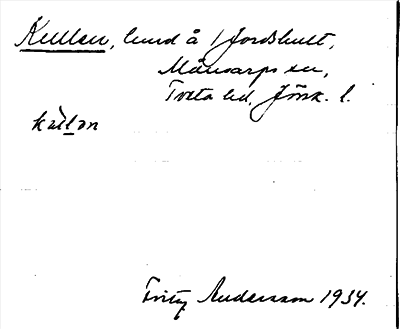 Kullen, lund å 1 Jordshult,
Månsarps sn,
Tveta hd, Jönk. l.
kùl̲ən
Fritz Andersson 1934.